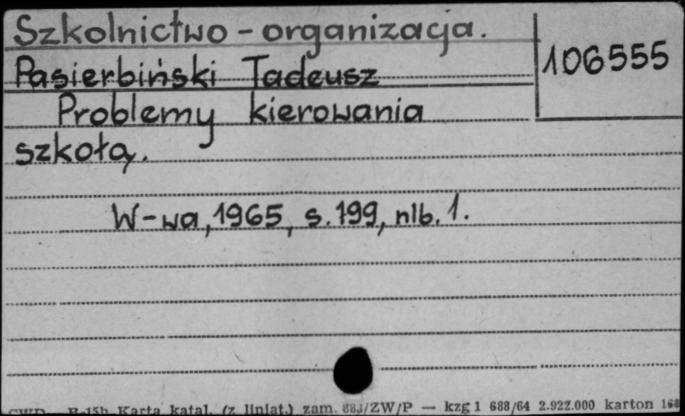 Szkolnictwo - organizacja.
106555
Pasierbiński Tadeusz
Problemy kierowania
szkołą.
W-wa, 1965, s. 199, nlb. 1.
Karta katal. (z liniat.) zam. /ZW/P — kzg 1 688/64 2.922.000 karton